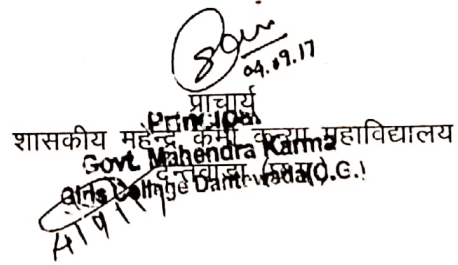 04.09.17
प्राचार्य
Principal
शासकीय महेन्द्र कर्मा कन्या महाविद्यालय
Govt. Mahendra Karma
दन्तेवाड़ा
Girls College Dantewada (C.G.)